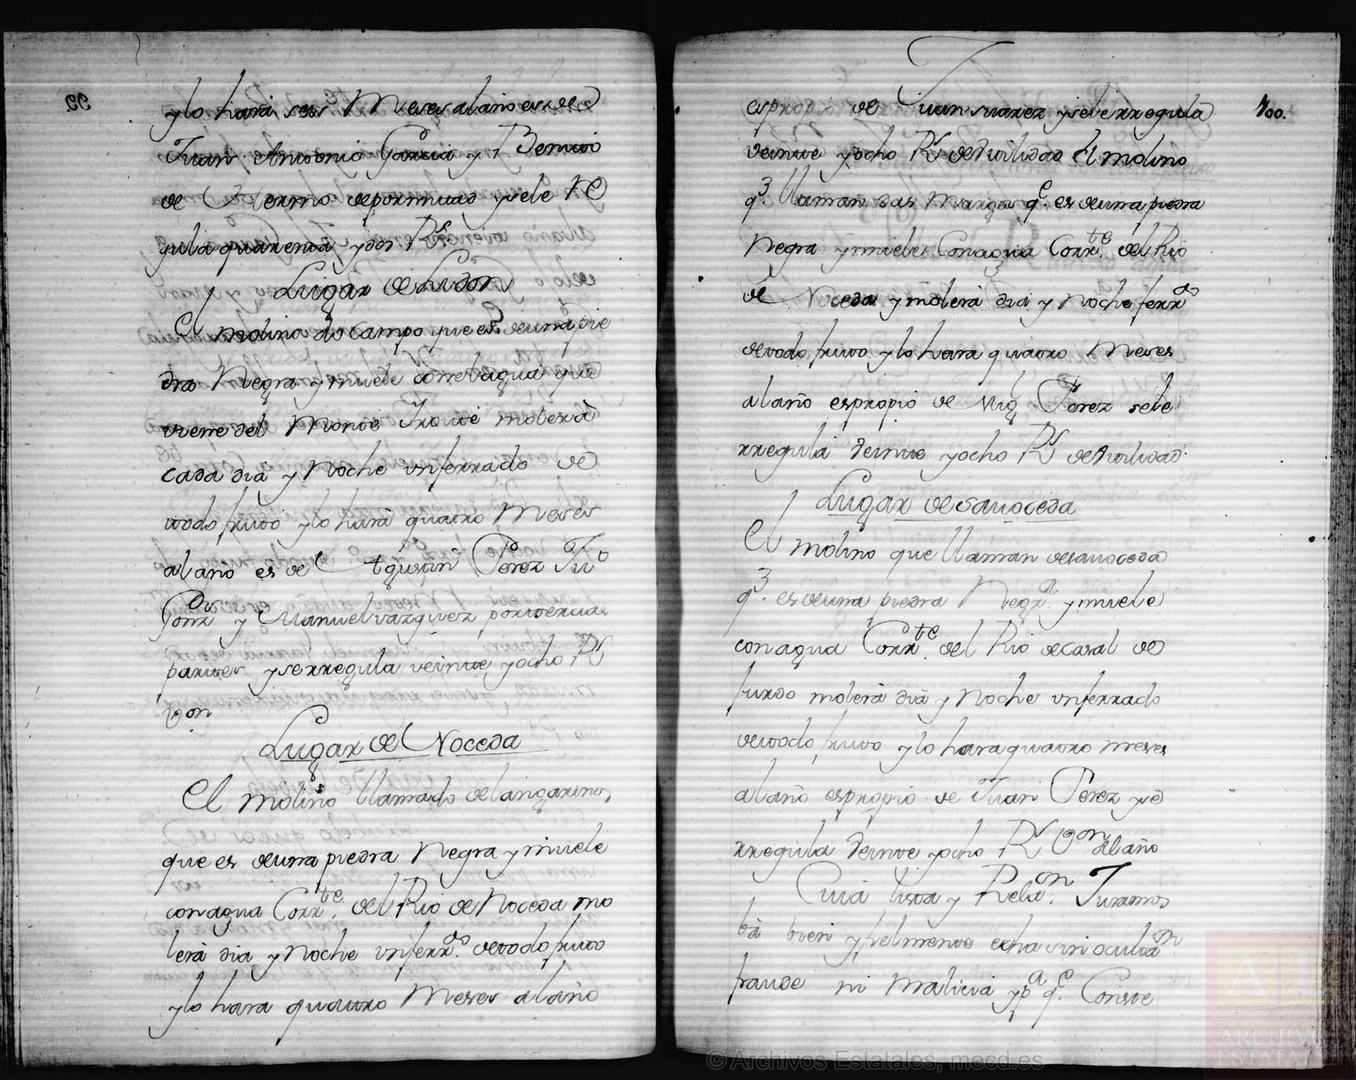 y lo hará seis Meses al año es de
Juan Antonio Garcia y Benito
de termo de por mitad y sele Re
gula quarenta y dos Rs.
Lugar de Ludon
El molino do Campo que es de una pie
dra Negra y muele con el agua que
viene del Monte molerá
cada dia y Noche un ferrado de
todo fruto y lo hará quatro Meses
al año es de Agustin Perez
Gonz y Manuel vazquez por terceras
partes y se rregula veinte y ocho Rs
Von
Lugar de Noceda
El molino llamado
que es de una piedra Negra y muele
con agua Corrte. del Rio de Noceda mo
lerá dia y Noche un ferrdo. de todo fruto
y lo hara quatro Meses al año
100.
es propio de Juan suarez y sele rregula
veinte y ocho Rs de Vtilidad El molino
q. llaman das q.e es de una piedra
Negra y muele Con agua Corrte. del Rio
de Noceda y molerá dia y Noche ferrdo
de todo fruto y lo hara quatro Meses
al año es propio de Migl Perez sele
rregula Veinte y ocho Rs de Vtilidad
Lugar de Sanoceda
El molino que llaman de sanoceda
q. es de una piedra Negra y muele
con agua Corrte. del Rio de Casal de
fundo molerá dia y Noche un ferrado
de todo fruto y lo hara quatro meses
al año es propio de Juan Perez y se
rregula Veinte y ocho Rs Von al año
Cuia lista y Relaon Juramos
bá bien y fielmente echa sin ocultaon
fraude ni Malicia y pa q.e Conste
© Archivos Estatales, mecd.es